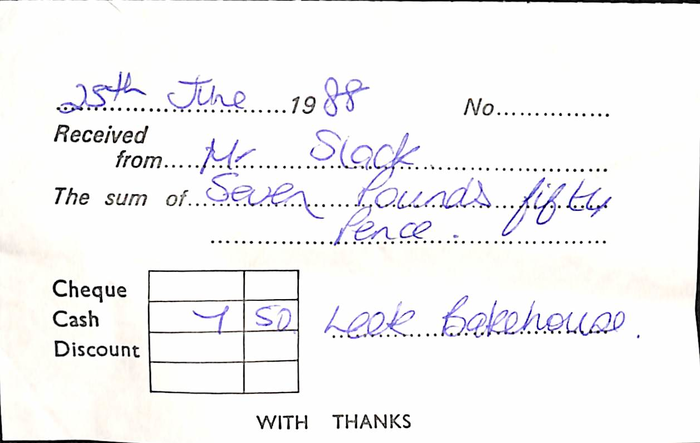 25th June 1988 No.
Received
from Mr Slack
The sum of Seven Pounds fifty
Pence.
Cheque
Cash 7 50 Leek Bakehouse.
Discount
WITH THANKS